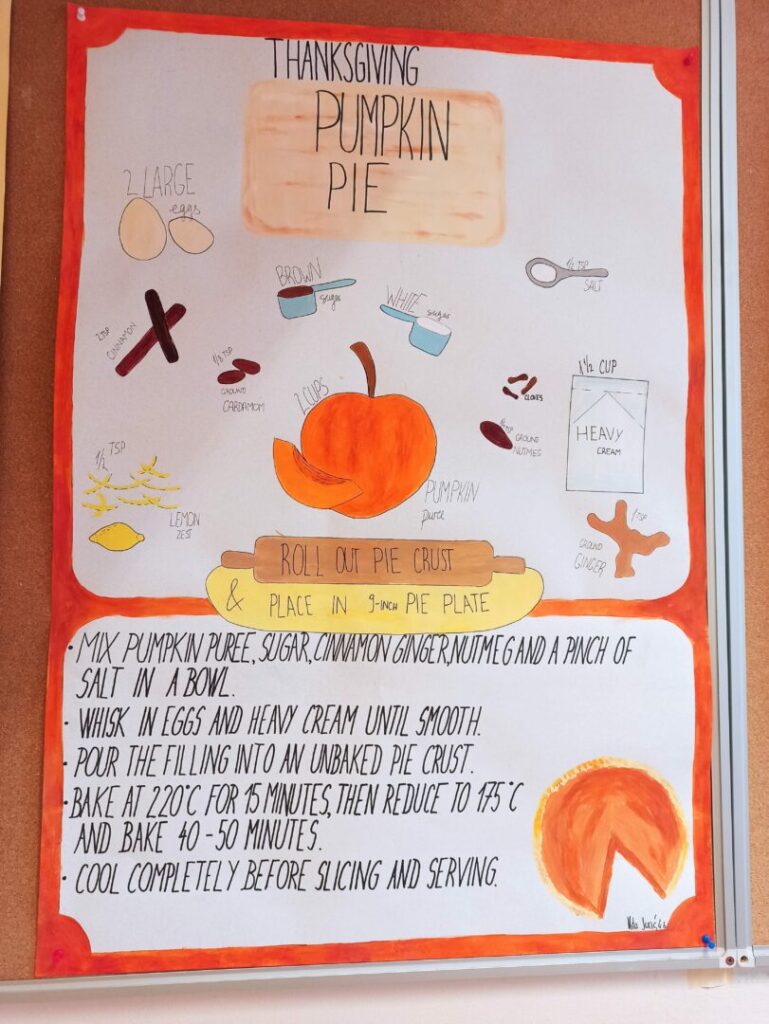 THANKSGIVING
PUMPKIN
PIE
2 LARGE
eggs
BROWN
sugar
WHITE
sugar
1/2 TSP
SALT
2 TSP
CINNAMON
1/3 TSP
GROUND
CARDAMOM
2 CUPS
PUMPKIN
CLOVES
TSP
GROUND
NUTMEG
1 1/2 CUP
HEAVY
CREAM
1/2 TSP
LEMON
ZEST
1 TSP
GROUND
GINGER
ROLL OUT PIE CRUST
& PLACE IN 9-INCH PIE PLATE
• MIX PUMPKIN PUREE, SUGAR, CINNAMON GINGER, NUTMEG AND A PINCH OF
SALT IN A BOWL.
• WHISK IN EGGS AND HEAVY CREAM UNTIL SMOOTH.
• POUR THE FILLING INTO AN UNBAKED PIE CRUST.
• BAKE AT 220°C FOR 15 MINUTES, THEN REDUCE TO 175°C
AND BAKE 40-50 MINUTES.
• COOL COMPLETELY BEFORE SLICING AND SERVING.